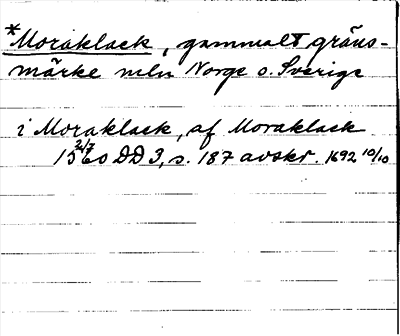 *Moraklack, gammalt gräns-
märke mln Norge o. Sverige
i Moraklack, af Moraklack
2/7 1560 DD 3, s. 187 avskr. 1692 10/10